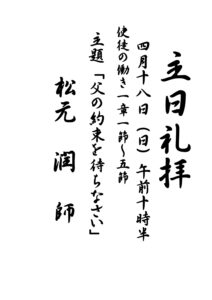 主日礼拝
四月十八日（日）午前十時半
使徒の働き一章一節〜五節
主題「父の約束を待ちなさい」
松元　潤　師